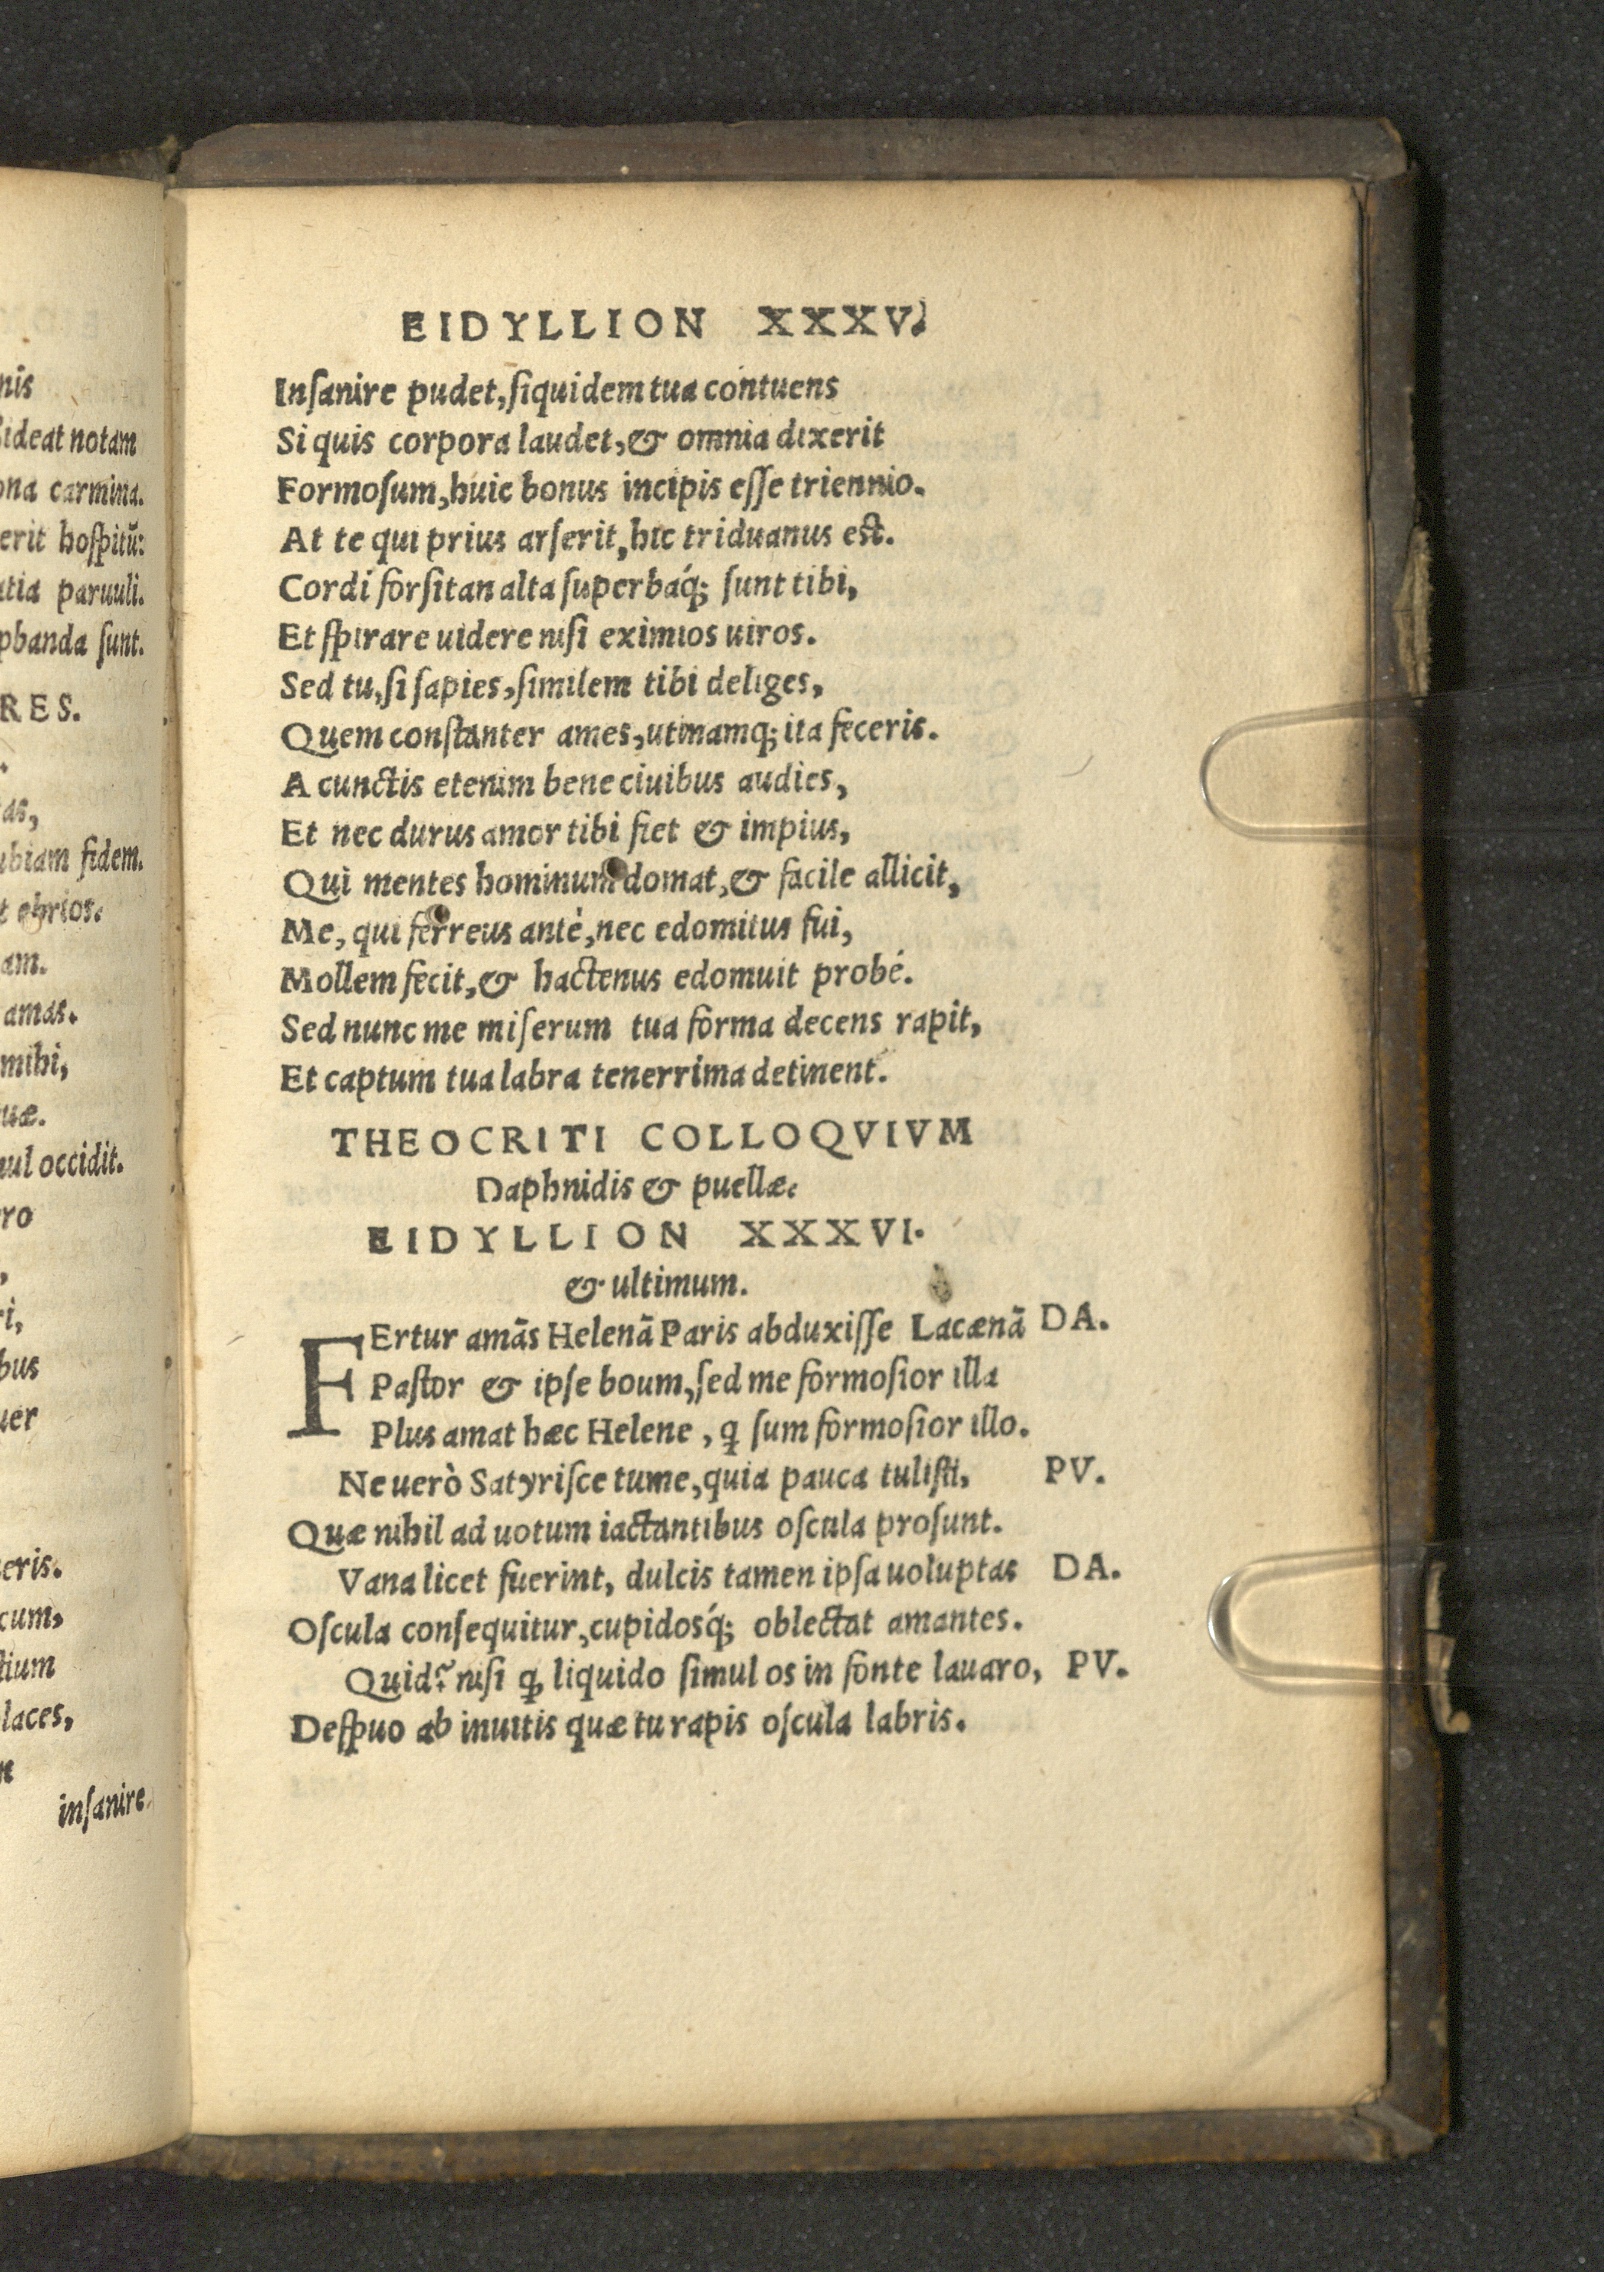 nis
ideat notam
ona carmina.
erit hoſpitū:
atia paruuli.
pbanda ſunt.
RES.
as,
ubiam fidem.
t ebrios.
am.
amas.
mihi,
uæ.
mul occidit.
ro
ri,
bus
uer
eris.
cum,
ſtium
laces,
inſanire
EIDYLLION XXXV.
Inſanire pudet, ſiquidem tua contuens
Si quis corpora laudet, & omnia dixerit
Formoſum, huic bonus incipis eſſe triennio.
At te qui prius arſerit, hic triduanus eſt.
Cordi forſitan alta ſuperbaq́; ſunt tibi,
Et ſpirare uidere niſi eximios uiros.
Sed tu, ſi ſapies, ſimilem tibi deliges,
Quem conſtanter ames, utinamq; ita feceris.
A cunctis etenim bene ciuibus audies,
Et nec durus amor tibi fiet & impius,
Qui mentes hominum domat, & facile allicit,
Me, qui ferreus antè, nec edomitus fui,
Mollem fecit, & hactenus edomuit probé.
Sed nunc me miſerum tua forma decens rapit,
Et captum tua labra tenerrima detinent.
THEOCRITI COLLOQVIVM
Daphnidis & puellæ.
EIDYLLION XXXVI.
& ultimum.
FErtur amãs Helenã Paris abduxiſſe Lacænã DA.
Paſtor & ipſe boum, ſed me formoſior illa
Plus amat hæc Helene, ꝗ ſum formoſior illo.
Ne uerò Satyriſce tume, quia pauca tuliſti, PV.
Quæ nihil ad uotum iactantibus oſcula proſunt.
Vana licet fuerint, dulcis tamen ipſa uoluptas DA.
Oſcula conſequitur, cupidosq́; oblectat amantes.
Quid? niſi ꝙ liquido ſimul os in fonte lauaro, PV.
Deſpuo ab inuitis quæ tu rapis oſcula labris.